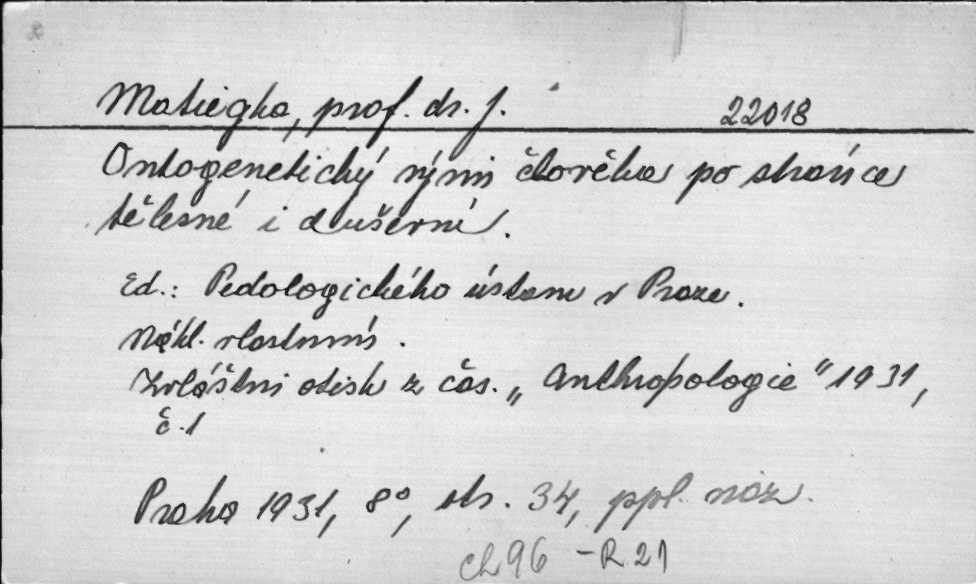 Matiegka, prof. dr. J. 22018
Ontogenetický vývin člověka po stránce
tělesné i duševní.
Ed.: Pedologického ústavu v Praze.
Nákl. vlastními.
Zvláštní otisk z čas. „Anthropologie" 1931,
č. 1
Praha 1931, 8°, str. 34, ppl. váz.
ch 96 - R 21